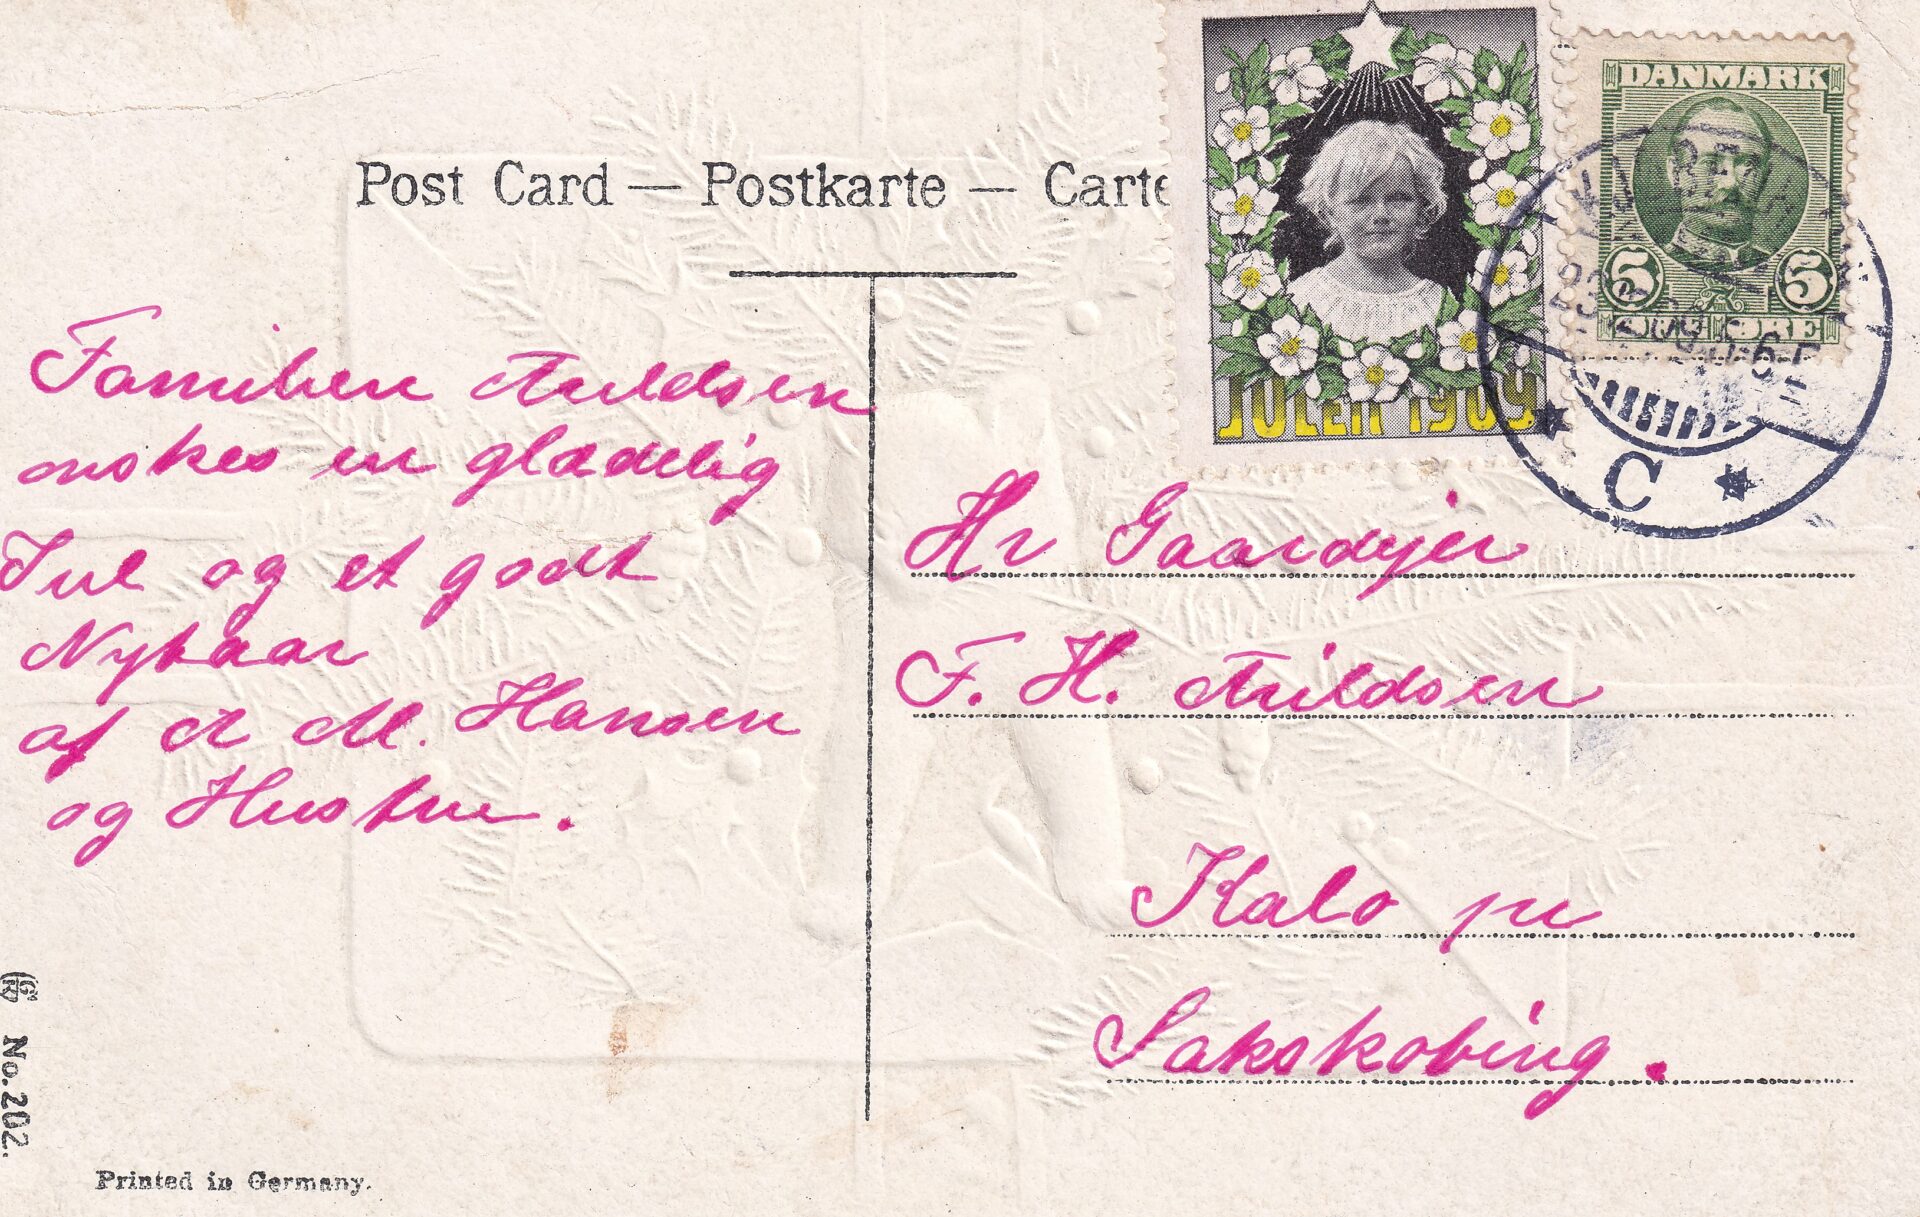 Post Card — Postkarte — Carte
JULEN 1909
DANMARK
5 5
ØRE
23.12.09. 5-6 E
C
Familien Arildsen
ønskes en glædelig
Jul og et godt
Nytaar
af A M. Hansen
og Hustru.
Hr Gaardejer
F. H. Arildsen
Kalø pr
Sakskobing.
No. 202.
Printed in Germany.